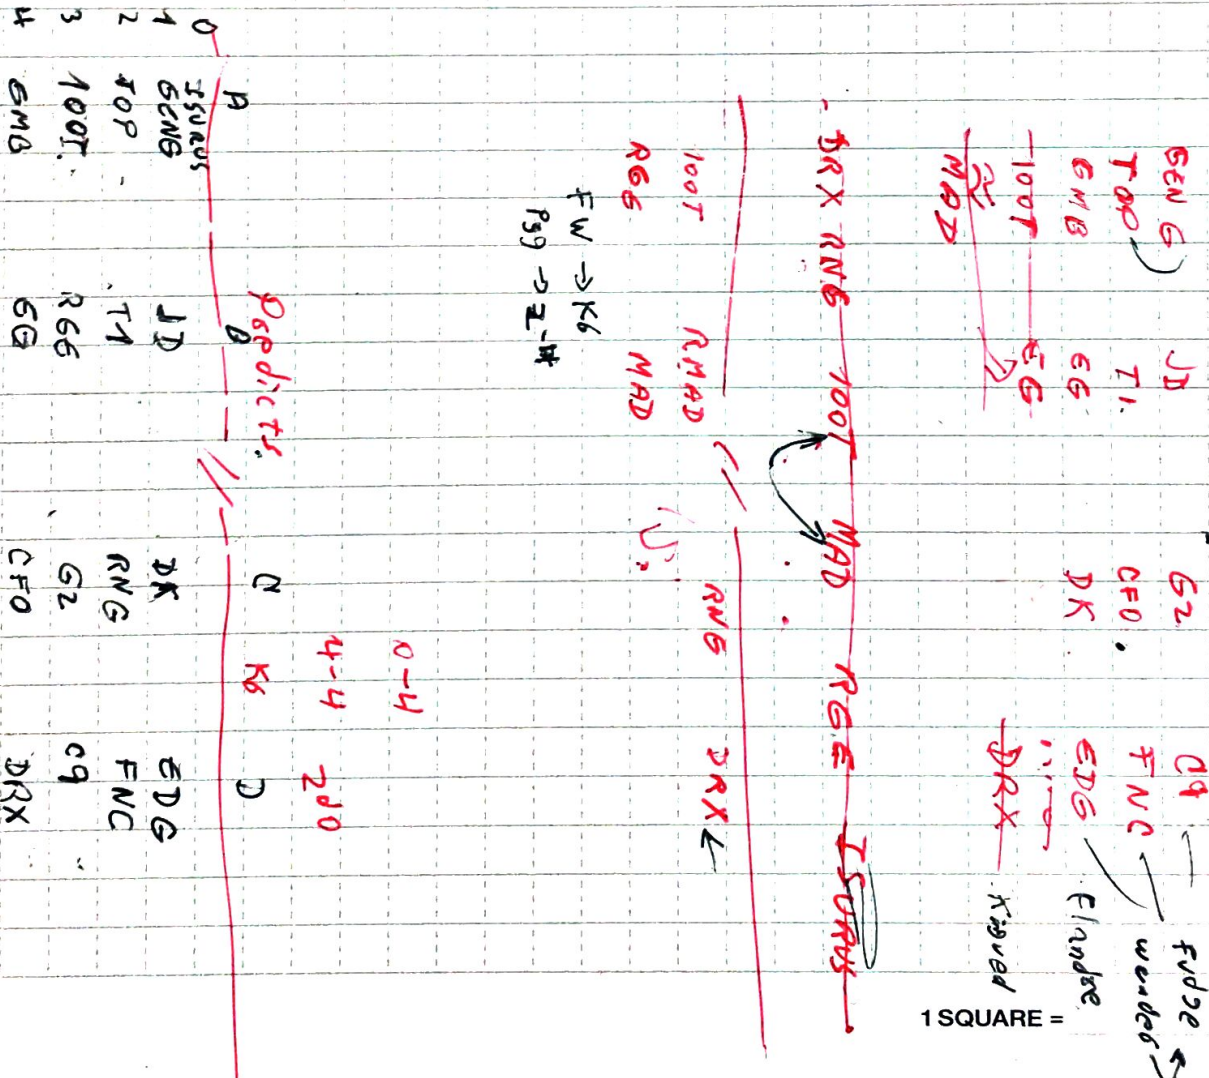 GEN G JD G2 C9 Fudge
TOP T1. CFO. FNC wunder
GMB EG DK EDG Flandre
100T EG
MAD DRX Kingved
- DRX RNG 100T MAD RGE ISURUS
100T RMAD RNG DRX ←
RGE MAD
FW → K6
P39 → Z-
10-4
4-4 200
Predicts. K6
A B C D
0 ISURUS
1 GENG JD DK EDG
2 TOP T1 RNG FNC
3 100T. RGE G2 C9
4 GMB EG CFO DRX
1 SQUARE =